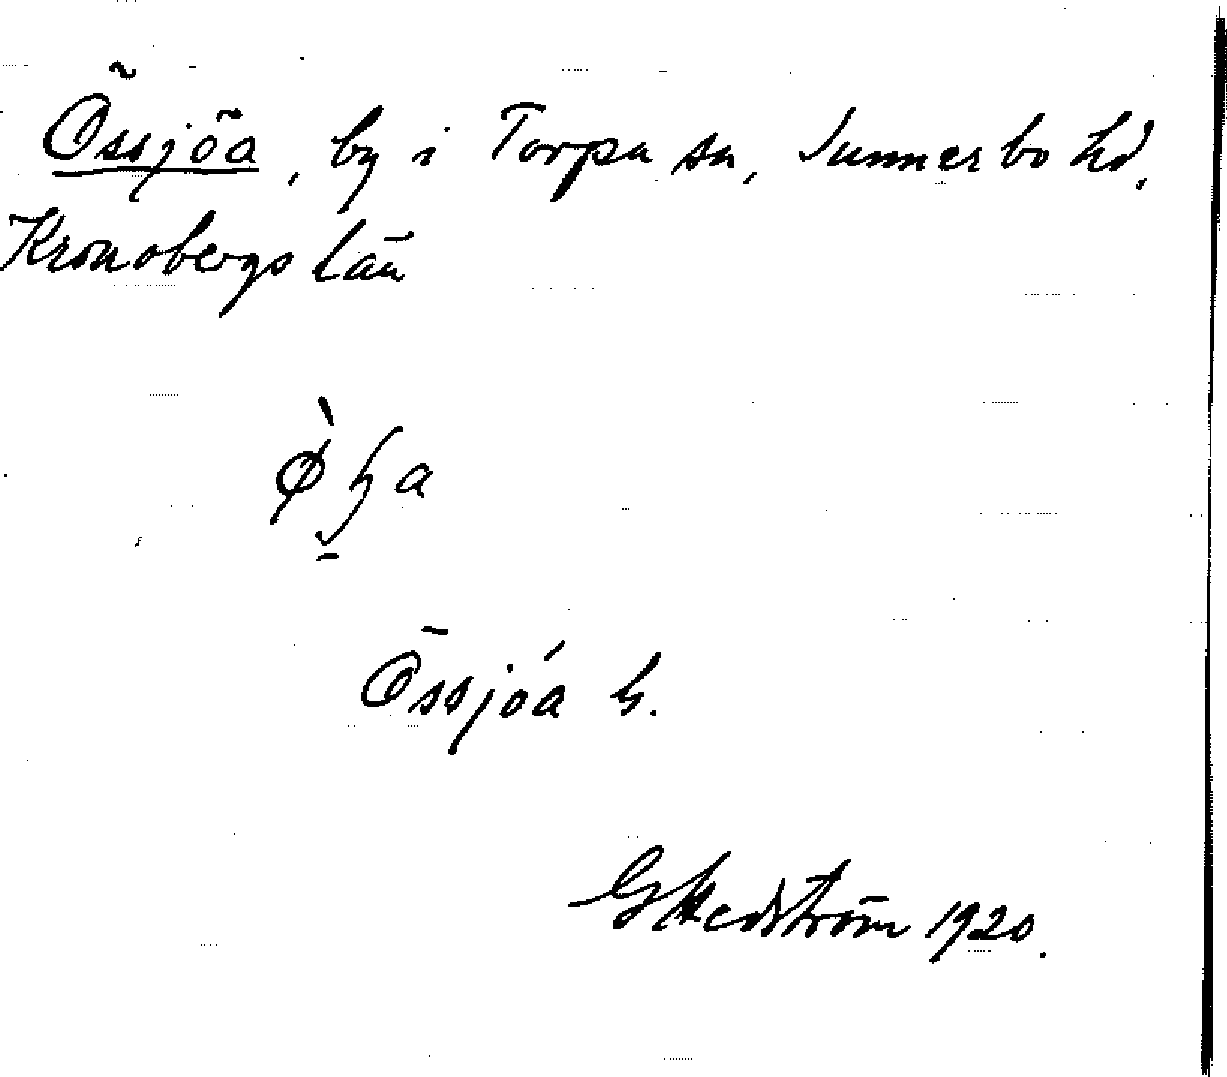 Össjöa, by i Torpa sn, Sunnerbo hd.
Kronobergs län
Össjöa G.
G Hedström 1920.